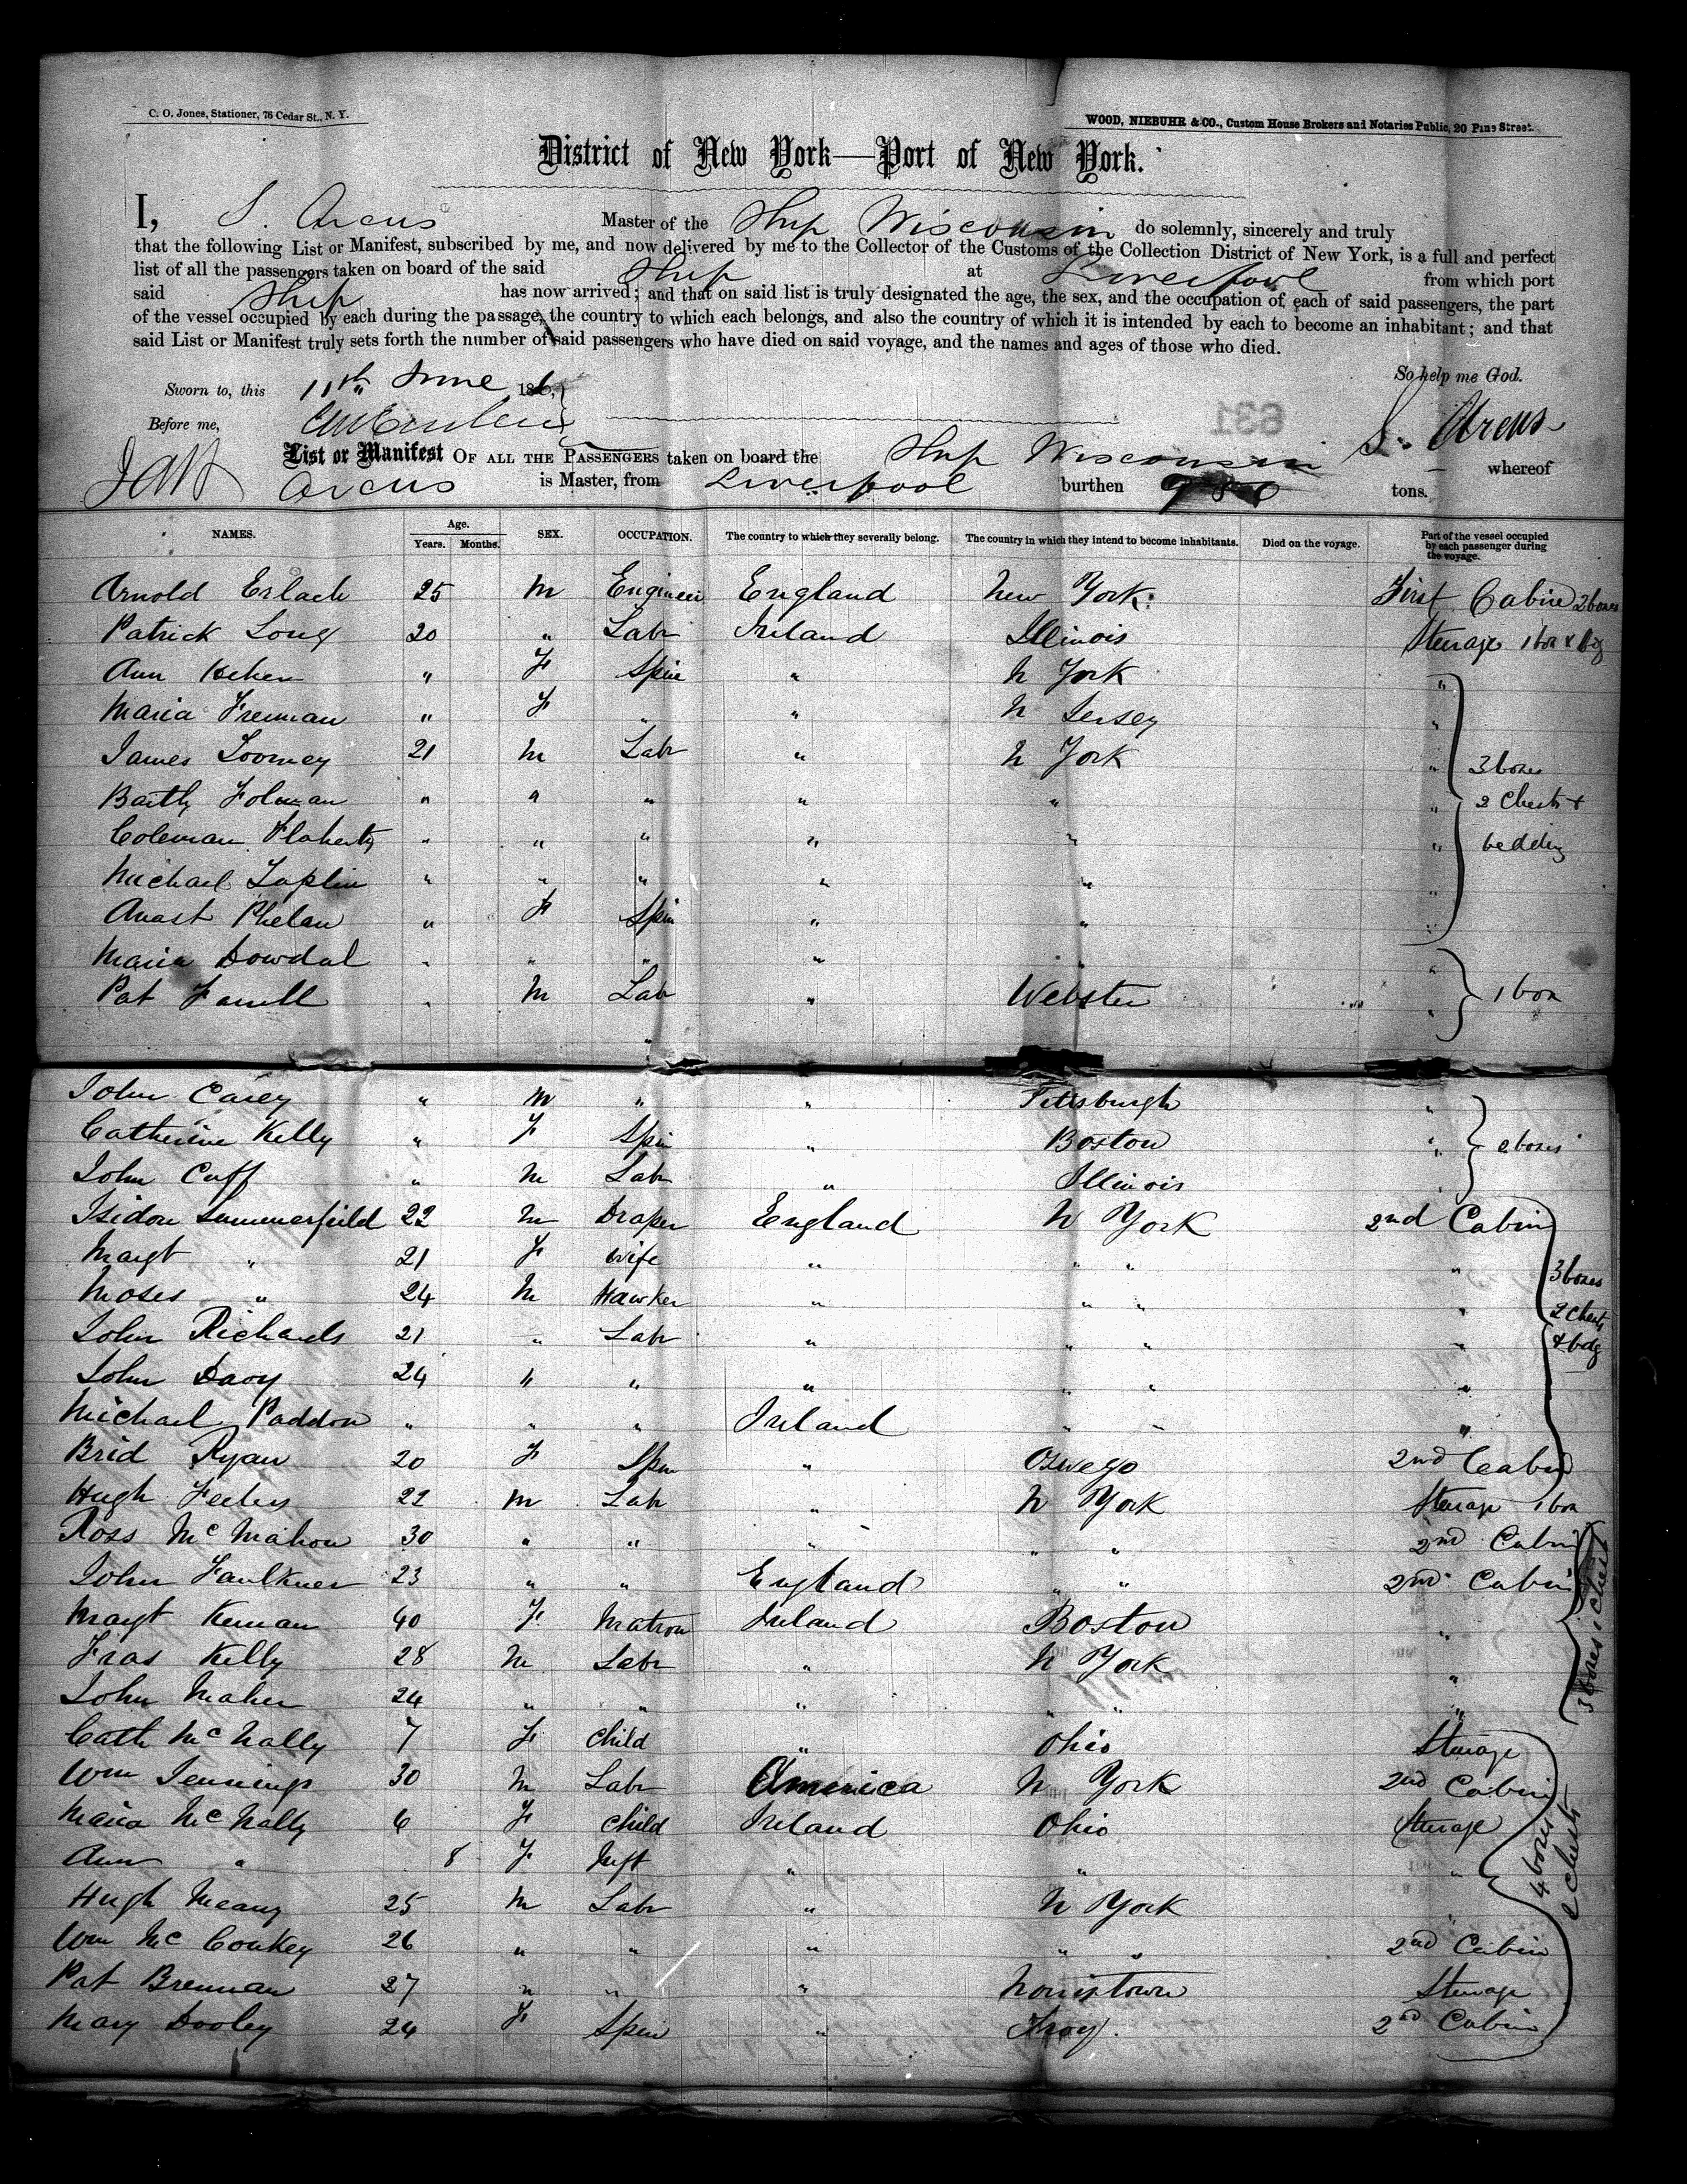 C. O. Jones, Stationer, 76 Cedar St., N. Y.
WOOD, NIEBUHR & CO., Custom House Brokers and Notaries Public, 20 Pine Street.
District of New York—Port of New York.
I, S. Arcus Master of the Ship Wisconsin do solemnly, sincerely and truly
that the following List or Manifest, subscribed by me, and now delivered by me to the Collector of the Customs of the Collection District of New York, is a full and perfect
list of all the passengers taken on board of the said Ship at Liverpool from which port
said Ship has now arrived; and that on said list is truly designated the age, the sex, and the occupation of each of said passengers, the part
of the vessel occupied by each during the passage, the country to which each belongs, and also the country of which it is intended by each to become an inhabitant; and that
said List or Manifest truly sets forth the number of said passengers who have died on said voyage, and the names and ages of those who died.
So help me God.
Sworn to, this 11th June 186
Before me,
631
S. Arcus
List or Manifest OF ALL THE PASSENGERS taken on board the Ship Wisconsin whereof
Arcus is Master, from Liverpool burthen tons.
NAMES. Age. Years. Months. SEX. OCCUPATION. The country to which they severally belong. The country in which they intend to become inhabitants. Died on the voyage. Part of the vessel occupied by each passenger during the voyage.
Arnold Erlach 25 M Engineer England New York First Cabin 2 boxes
Patrick Long 20 " Labr Ireland Illinois Steerage 1 box & bdg
Ann " F Spin " N York "
Maria Freeman " F " " N Jersey "
James Toomey 21 M Labr " N York " 3 boxes
Bartly Folman " " " " " " 2 Chests &
Coleman Flaherty " " " " " " bedding
Michael Laplin " " " " " "
Anast Phelan " F Spin " " "
Maria Dowdal " " " " " "
Pat Farrell " M Lab " Webster " 1 box
John Carey " M " " Pittsburgh "
Catherine Kelly " F Spin " Boston " 2 boxes
John Cuff " M Lab " Illinois "
Isidor Summerfield 22 M Draper England N York 2nd Cabin
Margt " 21 F Wife " " " " 3 boxes
Moses " 24 M Hawker " " " " 2 Chests
John Richards 21 " Labr " " " " & bdg
John Davy 24 " " " " " "
Michael Paddon " " " Ireland " " "
Brid Ryan 20 F Spin " Oswego 2nd Cabin
Hugh Feehy 22 M Labr " N York Steerage 1 box
Ross McMahon 30 " " " " " 2nd Cabin
John Faulkner 23 " " England " " 2nd Cabin
Margt Kernan 40 F Matron Ireland Boston "
Fras Kelly 28 M Labr " N York "
John Maher 24 " " " " " "
3 boxes 1 Chest
Cath McNally 7 F Child " Ohio Steerage
Wm Jennings 30 M Labr America N York 2nd Cabin
Maria McNally 6 F Child Ireland Ohio Steerage
Ann " 8 F Inft " " "
4 boxes
2 Chests
Hugh Meany 25 M Labr " N York "
Wm McConkey 26 " " " " " 2nd Cabin
Pat Brennan 27 " " " Norristown Steerage
Mary Dooley 24 F Spin " Troy 2nd Cabin